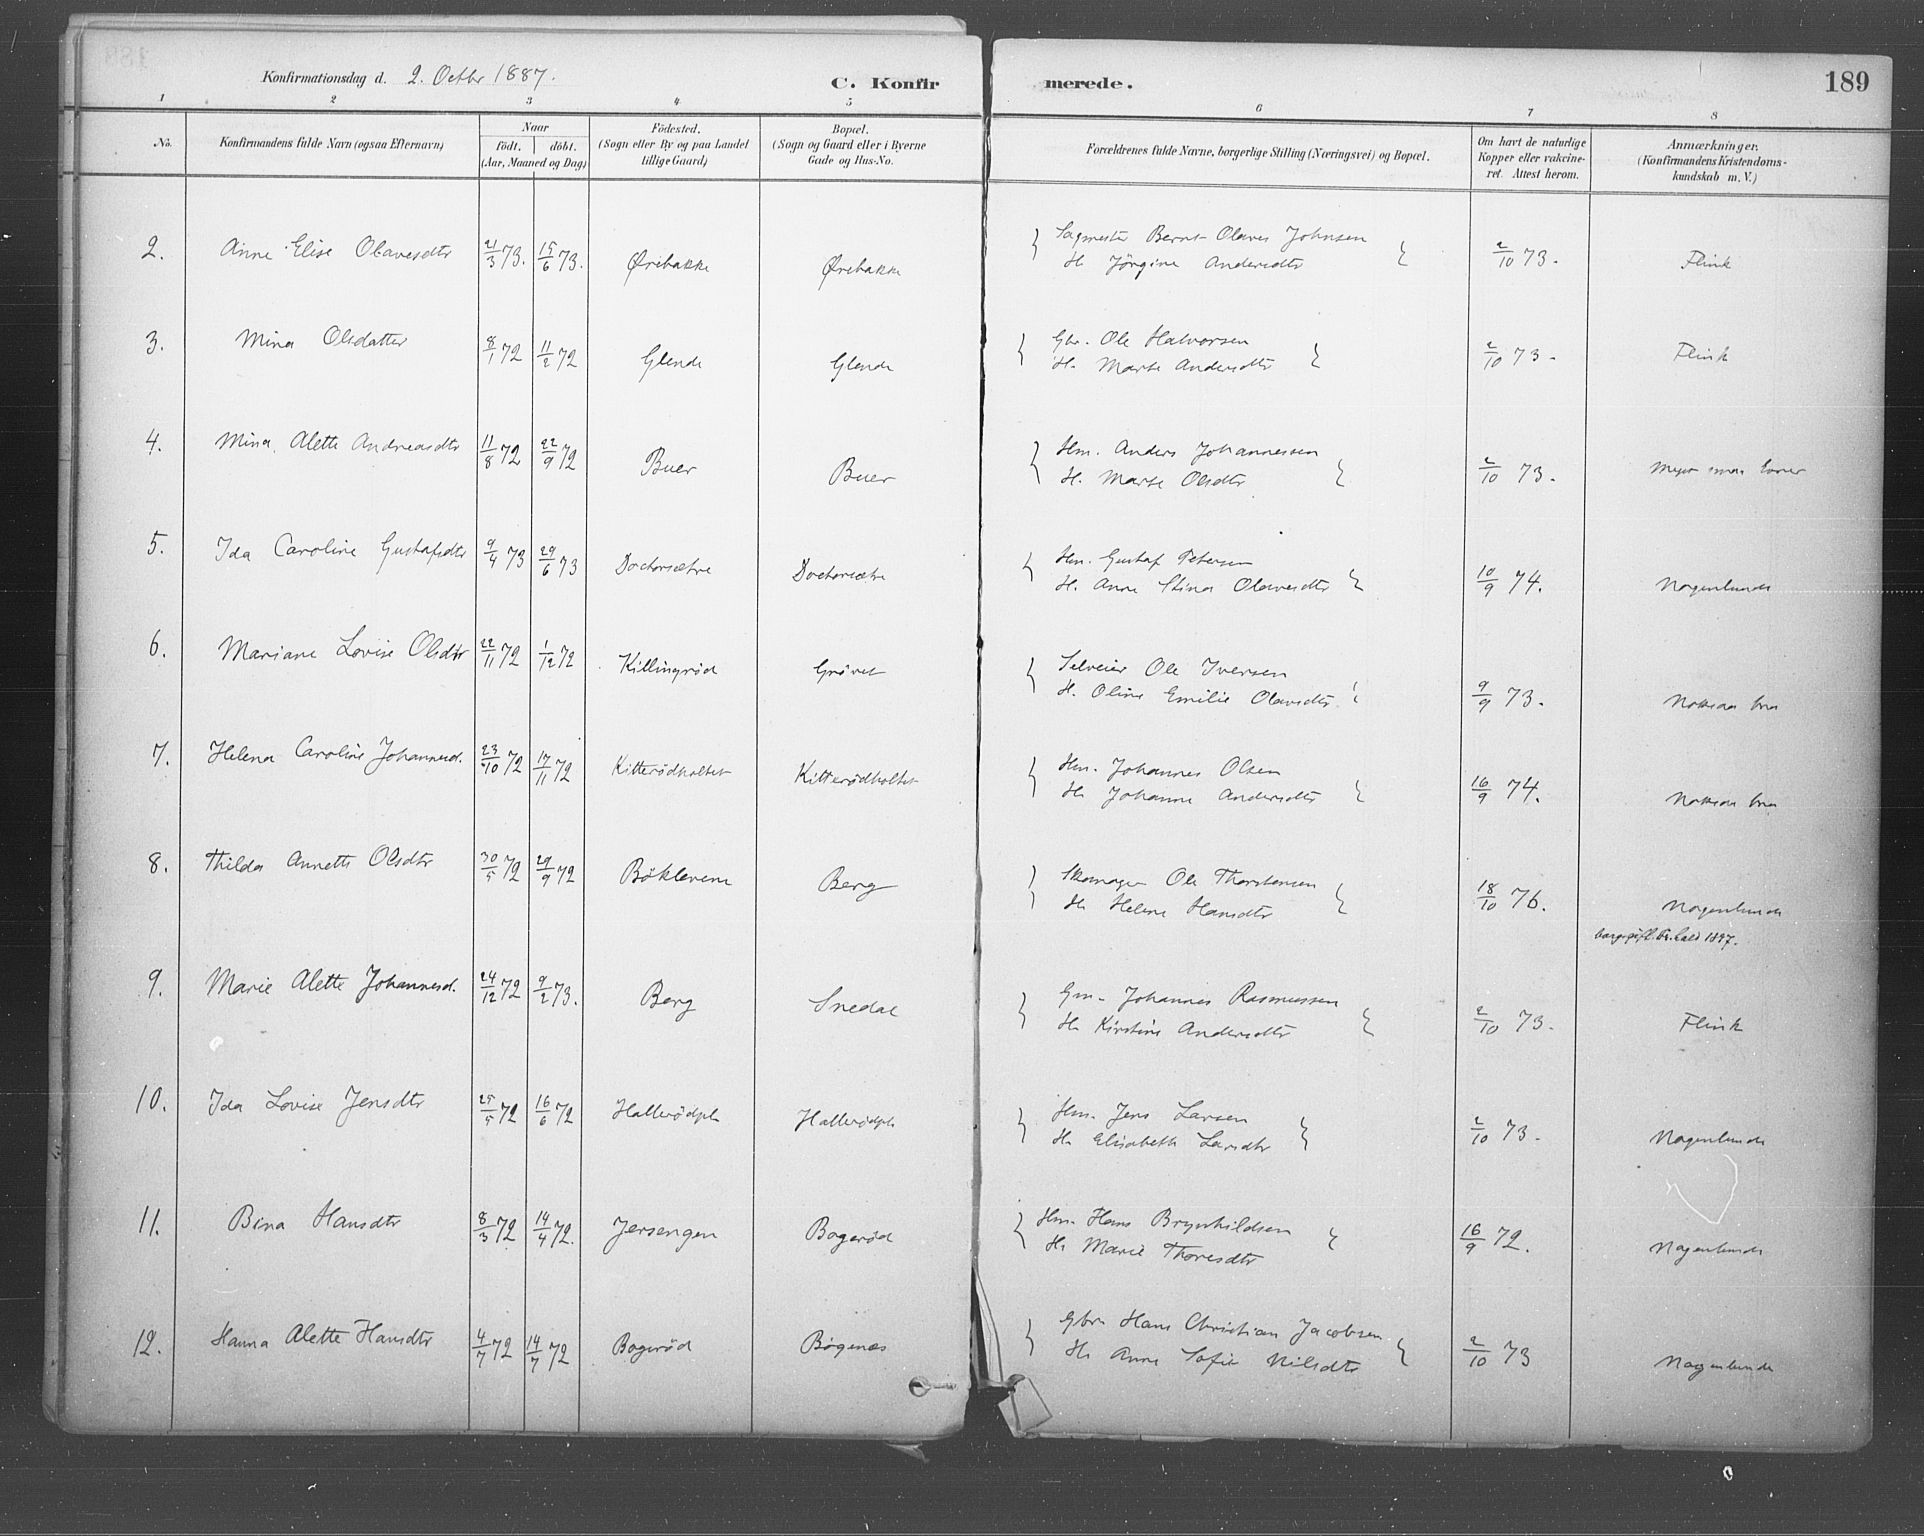 Konfirmationsdag d. 2. Octbr 1887. C. Konfir merede. 189
1 2 3 4 5 6 7 8
No. Konfirmandens fulde Navn (ogsaa Efternavn) Naar født. døbt. (Aar, Maaned og Dag) Fødested. (Sogn eller By og paa Landet tillige Gaard) Bopæl. (Sogn og Gaard eller i Byerne Gade og Hus-No. Forældrenes fulde Navne, borgerlige Stilling (Næringsvei) og Bopæl. Om havt de naturlige Kopper eller vakcineret. Attest herom. Anmærkninger. (Konfirmandens Kristendomskundskab m. V.)
2. Anne Elise Olavesdtr 21/3 73. 15/6 73. Ørebakke Ørebakke Sagmester Bernt Olaves Johnsen 2/10 73. Flink
H. Jörgine Andersdtr
3. Mina Olsdatter 8/1 72 11/2 72 Glende Glende Gbr. Ole Halvorsen 2/10 73 Flink
H. Marte Andersdtr
4. Mina Alette Andreasdtr 11/8 72 22/9 72 Buer Buer Hm. Anders Johannessen 2/10 73. Meget smaa Evner
H. Marte Olsdtr
5. Ida Caroline Gustafsdtr 9/4 73 29/6 73 Doctorsætre Doctorsætre Hm. Gustaf Petersen 10/9 74. Nogenlunde
H. Anne Stina Olavesdtr
6. Mariane Lovise Olsdtr 22/11 72 1/12 72 Killingrød Grøvet Selveier Ole Iversen 9/9 73. Noksaa bra
H. Oline Emilie Olavesdtr
7. Helena Caroline Johannesd. 23/10 72 17/11 72 Kitterödholtet Kitterödholtet Hm. Johannes Olsen 16/9 74. Noksaa bra
H. Johanne Andersdtr
8. Thilda Annette Olsdtr 30/5 72 29/9 72 Böklevene Berg Skomager Ole Thorstensen 18/10 76. Nogenlunde
H. Helene Hansdtr 1897.
9. Marie Alette Johannesd. 24/12 72 9/2 73. Berg Snedal Gm. Johannes Rasmussen 2/10 73. Flink
H. Kirstine Andersdtr
10. Ida Lovise Jensdtr 25/5 72 16/6 72 Hallerödpl Hallerödpl Hm. Jens Larsen 2/10 73. Nogenlunde
H. Elisabeth Larsdtr
11. Bina Hansdtr 8/3 72 14/4 72. Jersengen Bogerød Hm. Hans Brynhildsen 16/9 72. Nogenlunde
H. Marie Thoresdtr
12. Hanna Alette Hansdtr 4/7 72 14/7 72 Bogerød Bøgenæs Gbr. Hans Christian Jacobsen 2/10 73 Nogenlunde
H. Anne Sofie Nilsdtr